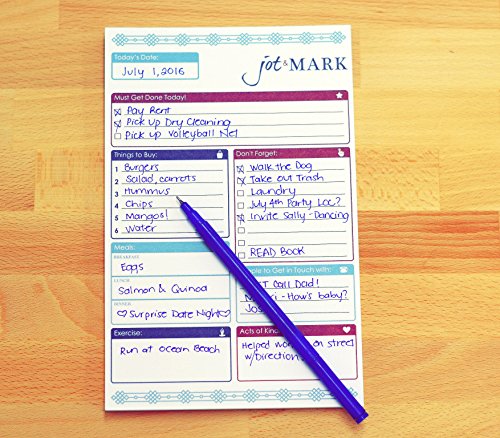 Today's Date:
July 1, 2016
jot & MARK
Must Get Done Today!
Pay Rent
Pick Up Dry Cleaning
Pick up Volleyball Net
Things to Buy:
1 Burgers
2 Salad, carrots
3 Hummus
4 Chips
5 Mangos!
6 Water
Don't Forget:
Walk the Dog
Take out Trash
Laundry
July 4th Party Loc?
Invite Sally-Dancing
READ BOOK
Meals:
BREAKFAST
Eggs
LUNCH
Salmon & Quinoa
DINNER
Surprise Date Night
to Get in Touch with:
Call Dad!
- How's baby?
Exercise:
Run at Ocean Beach
Acts of
Helped on street
w/Direction